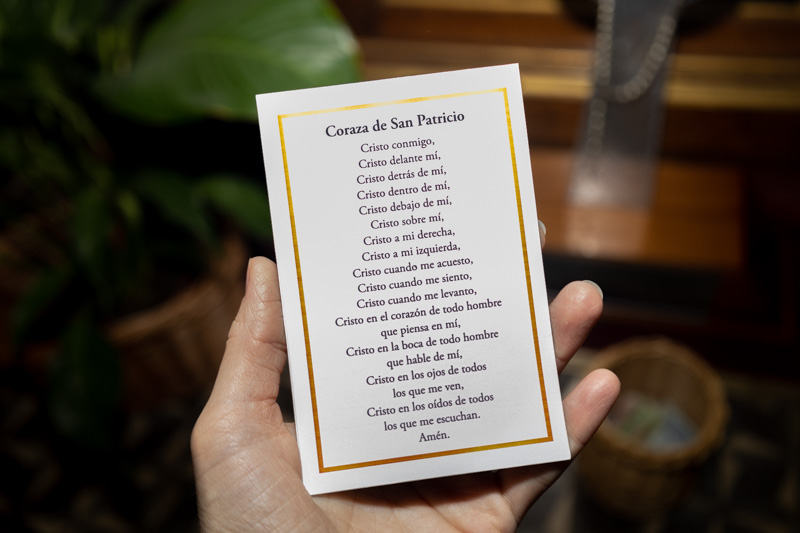 Coraza de San Patricio
Cristo conmigo,
Cristo delante mí,
Cristo detrás de mí,
Cristo dentro de mí,
Cristo debajo de mí,
Cristo sobre mí,
Cristo a mi derecha,
Cristo a mi izquierda,
Cristo cuando me acuesto,
Cristo cuando me siento,
Cristo cuando me levanto,
Cristo en el corazón de todo hombre
que piensa en mí,
Cristo en la boca de todo hombre
que hable de mí,
Cristo en los ojos de todos
los que me ven,
Cristo en los oídos de todos
los que me escuchan.
Amén.